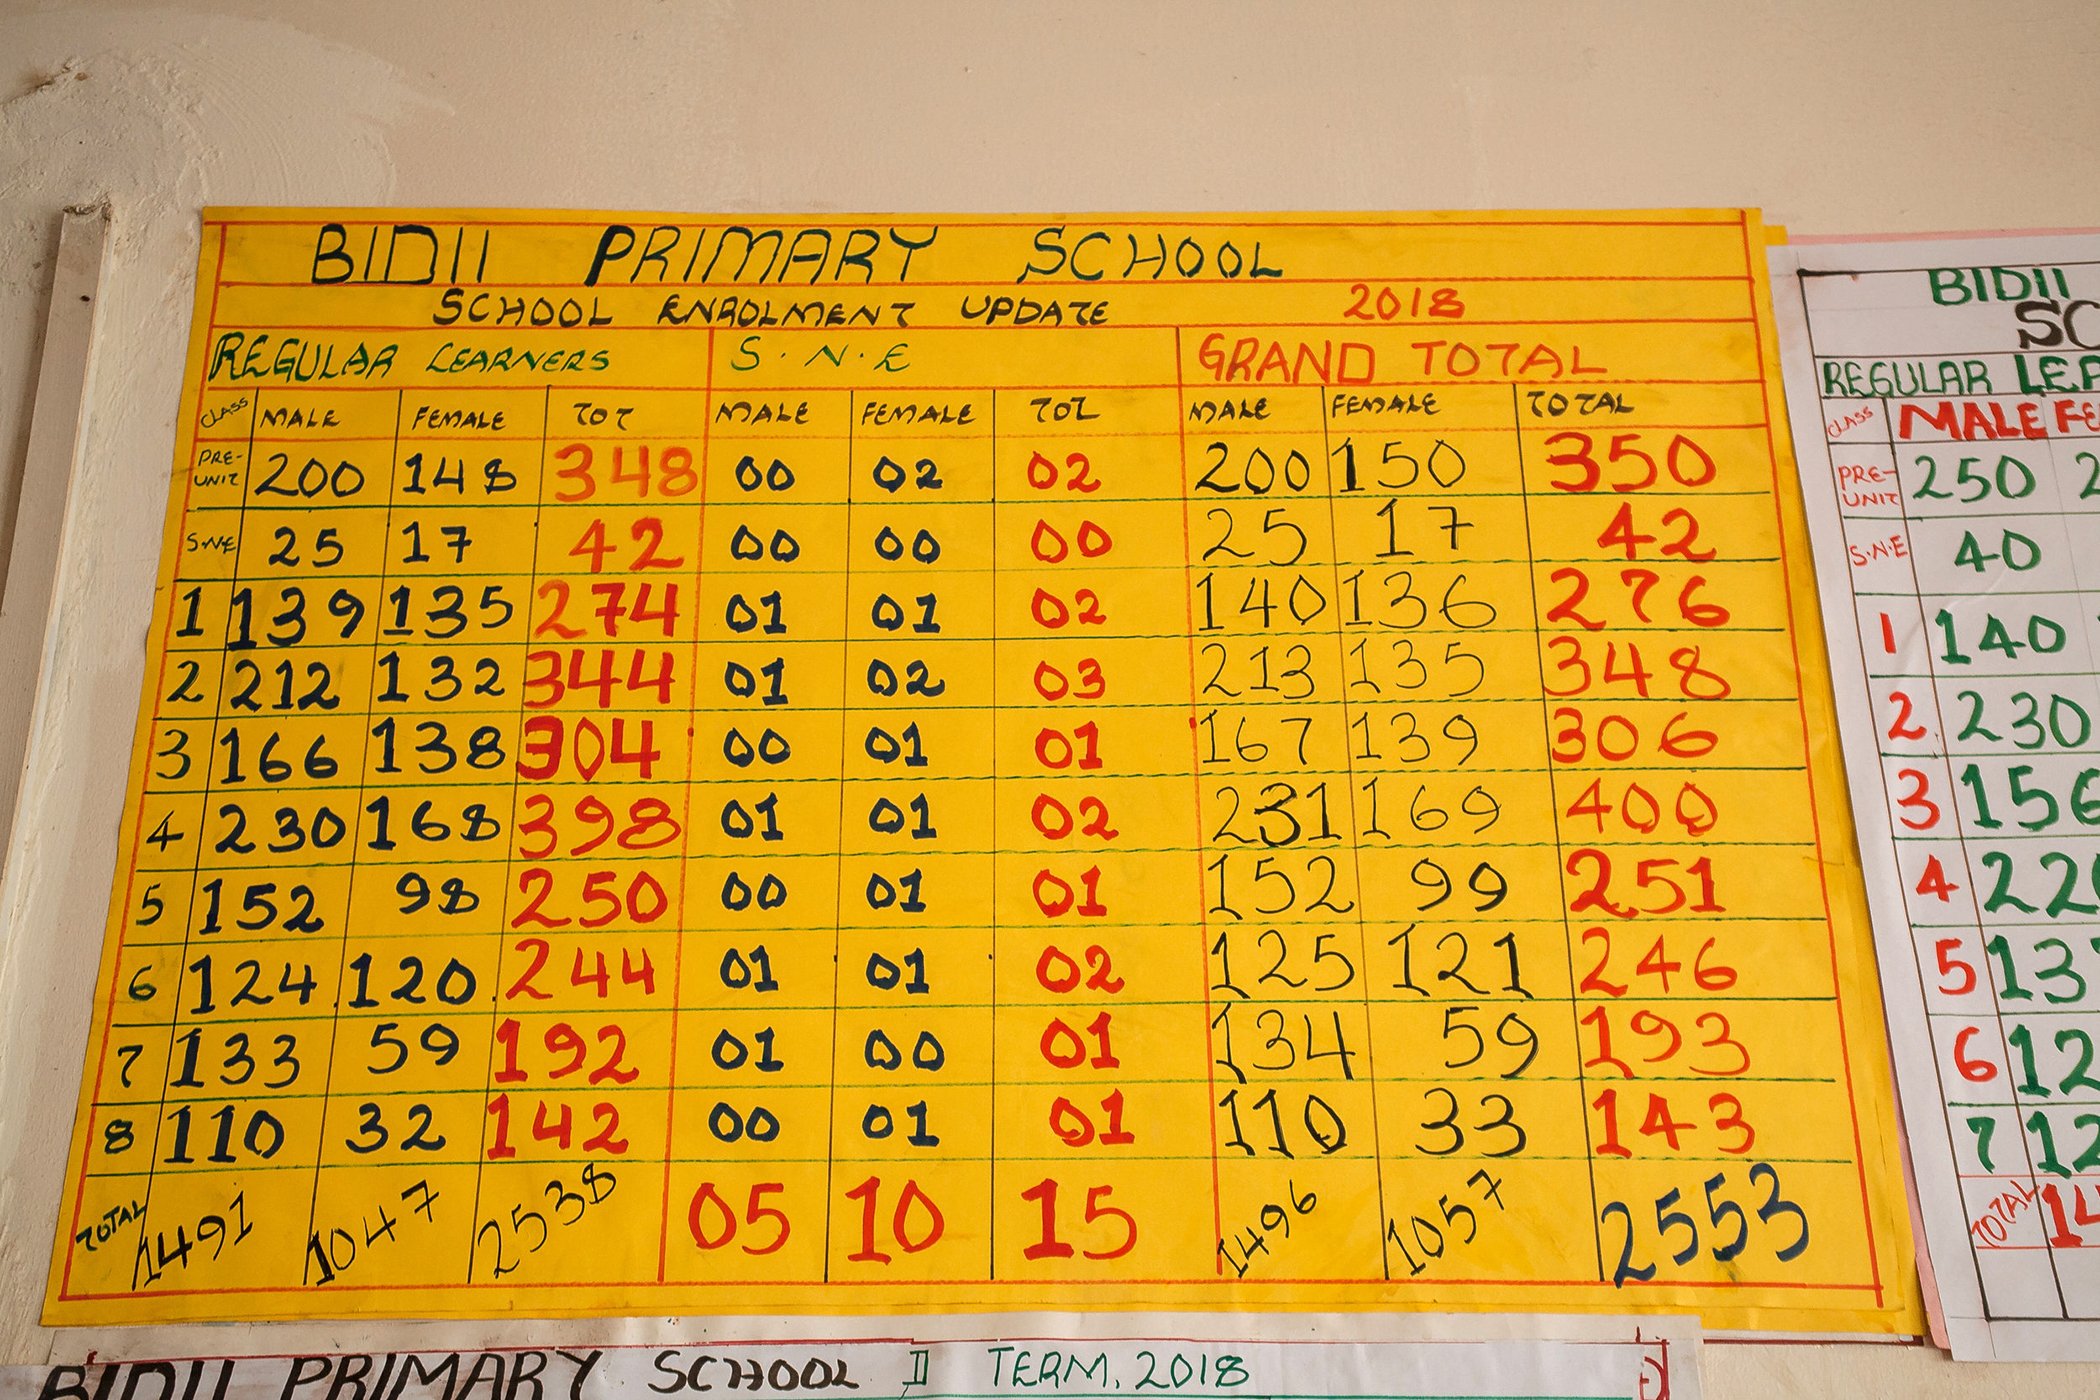 BIDII PRIMARY SCHOOL
SCHOOL ENROLMENT UPDATE 2018
REGULAR LEARNERS S.N.E GRAND TOTAL
CLASS MALE FEMALE TOT MALE FEMALE TOT MALE FEMALE TOTAL
PRE-UNIT 200 148 348 00 02 02 200 150 350
S.N.E 25 17 42 00 00 00 25 17 42
1 139 135 274 01 01 02 140 136 276
2 212 132 344 01 02 03 213 135 348
3 166 138 304 00 01 01 167 139 306
4 230 168 398 01 01 02 231 169 400
5 152 98 250 00 01 01 152 99 251
6 124 120 244 01 01 02 125 121 246
7 133 59 192 01 00 01 134 59 193
8 110 32 142 00 01 01 110 33 143
TOTAL 1491 1047 2538 05 10 15 1496 1057 2553
BIDII
SC
REGULAR LEA
CLASS MALE FE
PRE-UNIT 250 2
S.N.E 40
1 140
2 230
3 156
4 22
5 13
6 12
7 12
TOTAL 14
BIDII PRIMARY SCHOOL II TERM, 2018